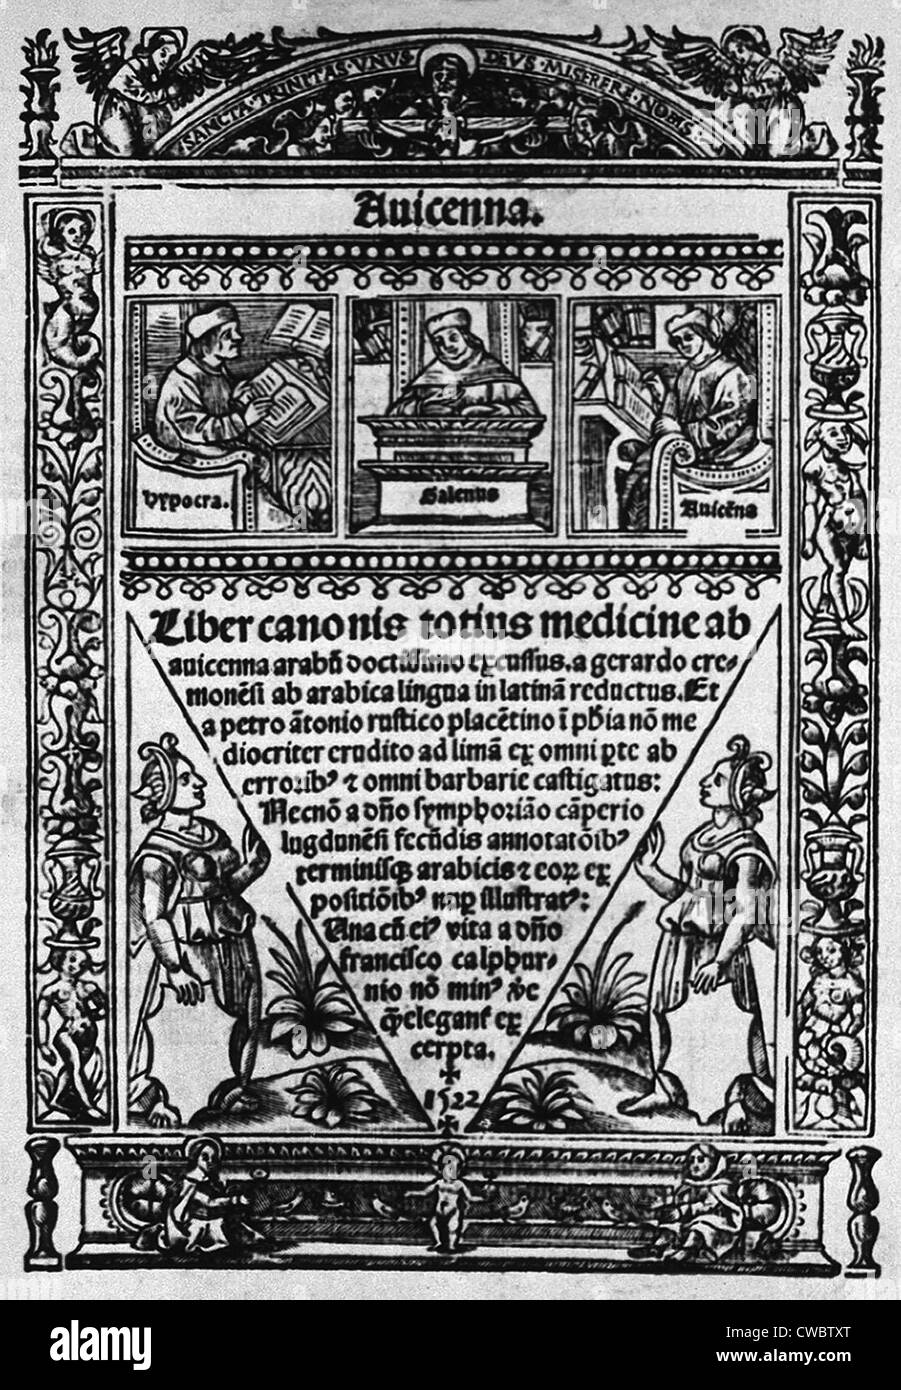 SANCTA · TRINITAS · VNVS DEVS · MISERERE · NOBIS
Auicenna.
Hypocra.
Galenus
Auicēna
Liber canonis totius medicine ab
auicenna arabū doctissimo excussus. a gerardo cre-
monēsi ab arabica lingua in latinā reductus. Et
a petro ātonio rustico placētino ī phīa nō me
diocriter erudito ad limā ex omni pte ab
erroribꝰ ⁊ omni barbarie castigatus:
Necnō a dño symphoriāo cāperio
lugdunēsi fecūdis annotatōibꝰ
terminisqꝫ arabicis ⁊ eoꝝ ex
positiōibꝰ nuꝑ illustratꝰ:
Una cū eiꝰ vita a dño
francisco calphur-
nio nō minꝰ
qꝫ elegant ex
cerpta.
1522
alamy
Image ID: CWBTXT
www.alamy.com